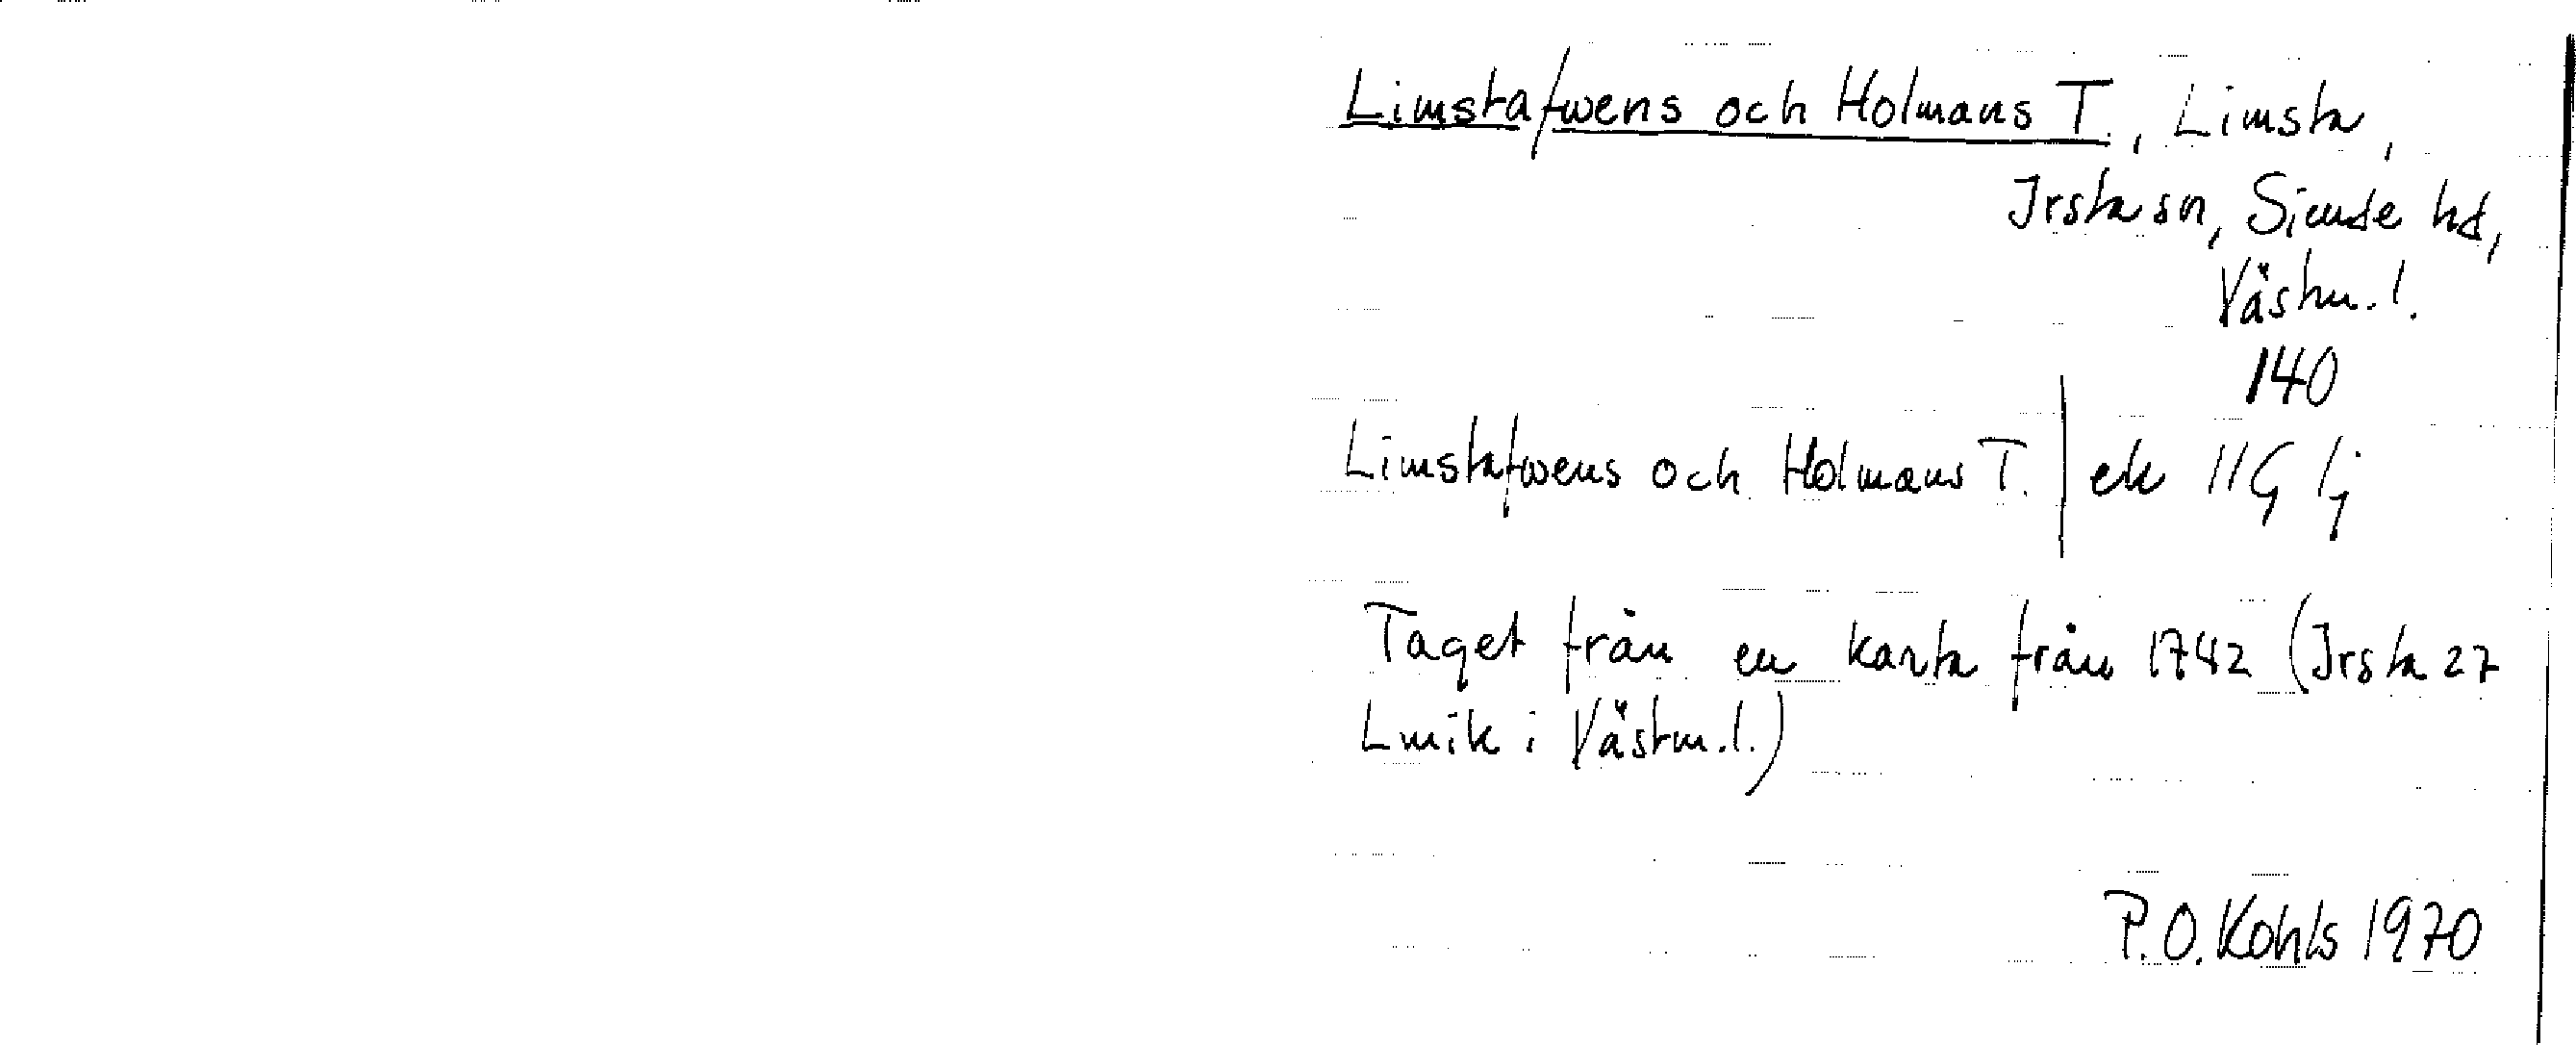 Limstafwens och Holmans T., Limsta,
Irsta sn, Siende hd,
Västm. l.
140
Limstafwens och Holmans T. | ek 11G 1j
Taget från en karta från 1742 (Irsta 27
Lmik i Västm. l.)
P.O. Kohls 1970